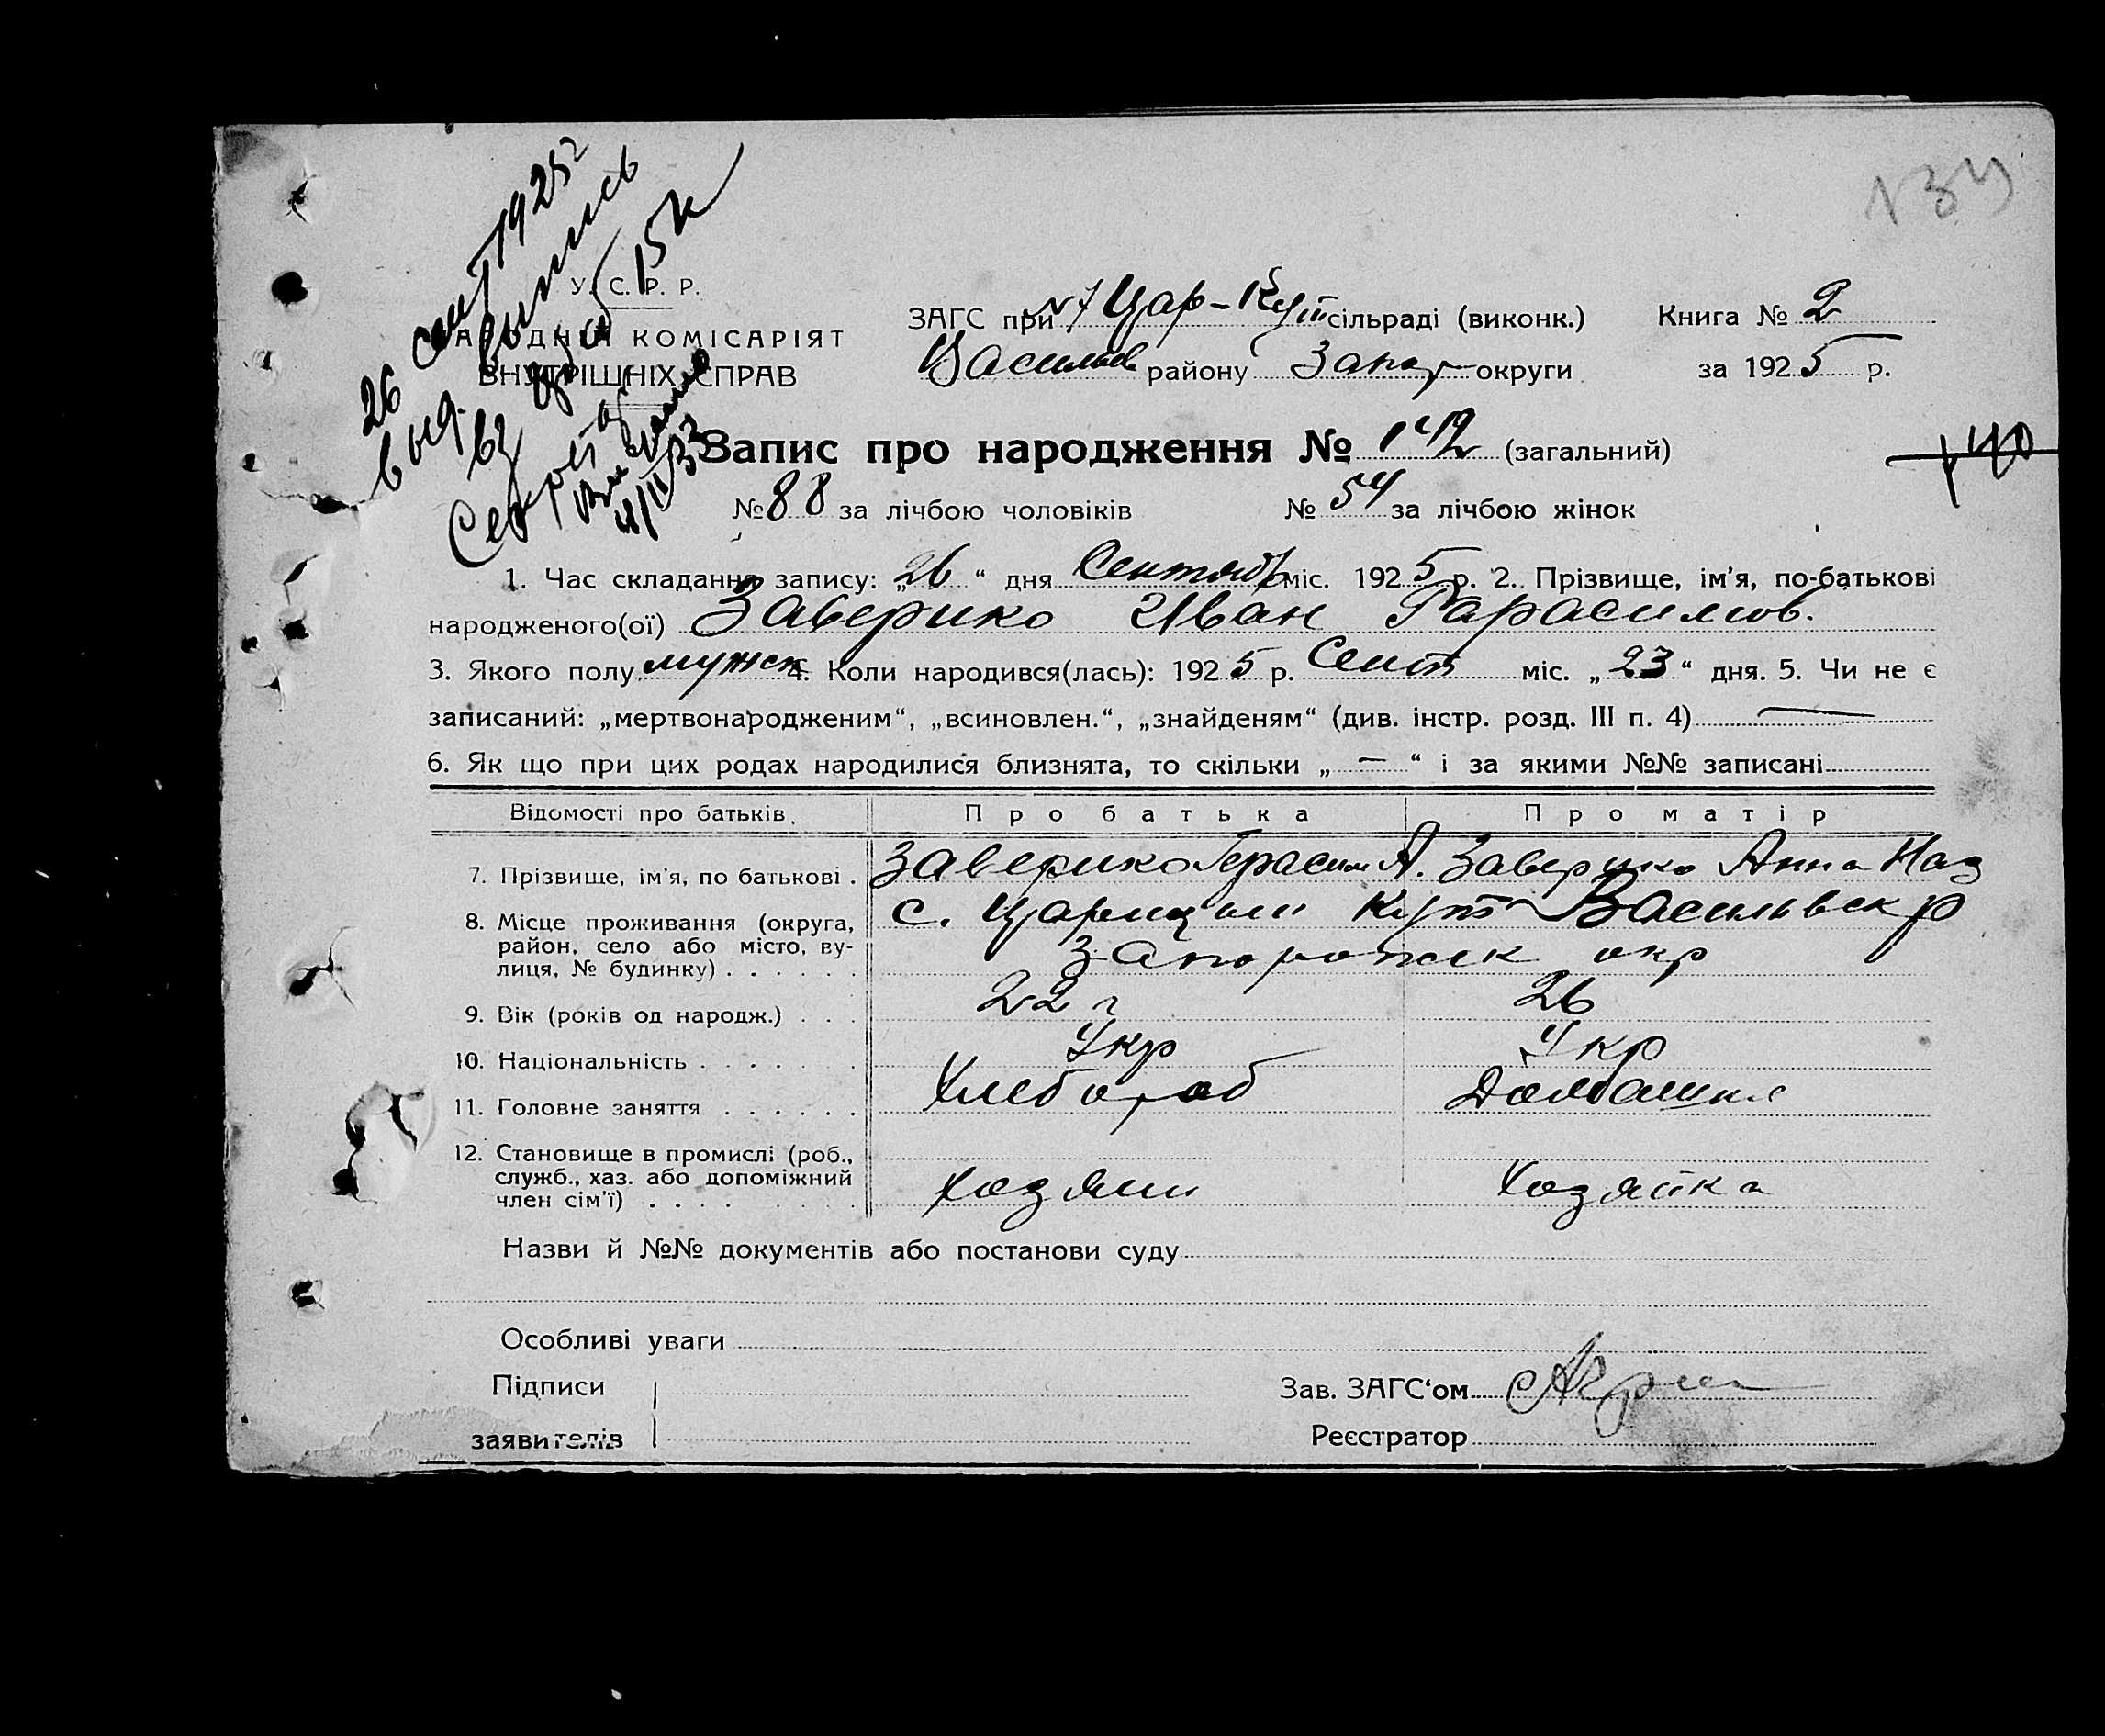 134
26 сент 1925 г
выд. выпись
за № 62
15к
У. С. Р. Р.
НАРОДНІЙ КОМІСАРІЯТ
ВНУТРІШНІХ СПРАВ
ЗАГС при Цар-Кут сільраді (виконк.) Книга № 2
Васильев району Запор округи за 1925 р.
Запис про народження № 142 (загальний)
140
№ 88 за лічбою чоловіків № 54 за лічбою жінок
1. Час складання запису: „26“ дня Сентябр міс. 1925 р. 2. Прізвище, ім'я, по-батькові
народженого(ої) Заверико Иван Гарасимов.
3. Якого полу мужск 4. Коли народився(лась): 1925 р. Сент міс. „23“ дня. 5. Чи не є
записаний: „мертвонародженим“, „всиновлен.“, „знайденям“ (див. інстр. розд. III п. 4) —
6. Як що при цих родах народилися близнята, то скільки „ — “ і за якими №№ записані
Відомості про батьків. Про батька Про матір
7. Прізвище, ім'я, по батькові . Заверико Герасим А. Заверико Анна Наз
8. Місце проживання (округа, с. Царицын Кут Васильевск р
район, село або місто, ву- Запорожск окр
лиця, № будинку) . . . . . .
9. Вік (років од народж.) . . . 22 г 26
10. Національність . . . . . . Укр Укр
11. Головне заняття . . . . . . Хлебороб Домашня
12. Становище в промислі (роб.,
служб., хаз. або допоміжний
член сім'ї) . . . . Хозяин Хозяйка
Назви й №№ документів або постанови суду
Особливі уваги
Підписи Зав. ЗАГС'ом
заявителів Реєстратор